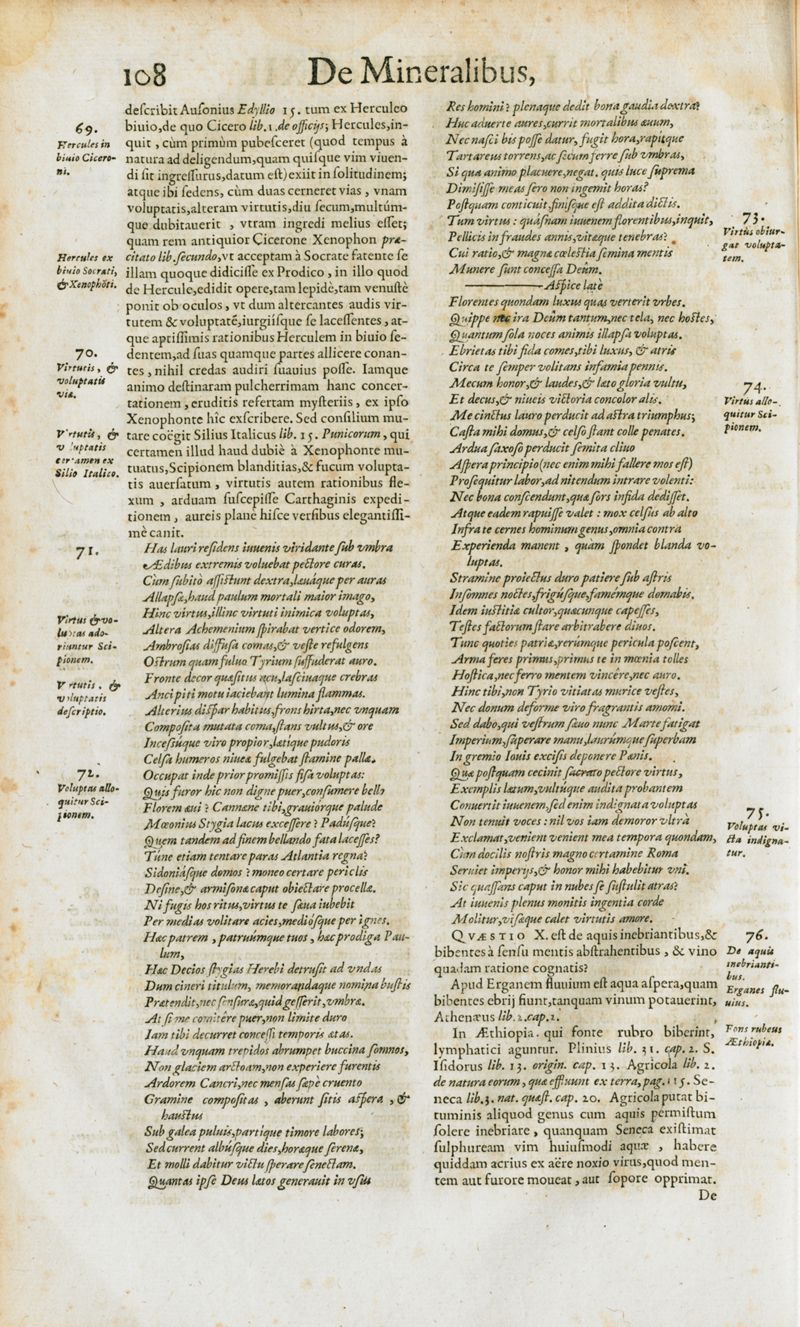 108
De Mineralibus,
deſcribit Auſonius Edyllio 15. tum ex Herculeo
biuio,de quo Cicero lib.1.de officijs; Hercules,in-
quit , cùm primùm pubeſceret (quod tempus à
natura ad deligendum,quam quiſque vim viuen-
di ſit ingreſſurus,datum eſt) exiit in ſolitudinem;
atque ibi ſedens, cùm duas cerneret vias , vnam
voluptatis,alteram virtutis,diu ſecum,multúm-
que dubitauerit , vtram ingredi melius eſſet;
quam rem antiquior Cicerone Xenophon præ-
citato lib.ſecundo,vt acceptam à Socrate fatente ſe
illam quoque didiciſſe ex Prodico , in illo quod
de Hercule,edidit opere,tam lepidè,tam venuſtè
ponit ob oculos , vt dum altercantes audis vir-
tutem & voluptatē,iurgiiſque ſe laceſſentes , at-
que aptiſſimis rationibus Herculem in biuio ſe-
dentem,ad ſuas quamque partes allicere conan-
tes , nihil credas audiri ſuauius poſſe. Iamque
animo deſtinaram pulcherrimam hanc concer-
tationem , eruditis refertam myſteriis , ex ipſo
Xenophonte hîc exſcribere. Sed conſilium mu-
tare coëgit Silius Italicus lib. 15. Punicorum , qui
certamen illud haud dubiè à Xenophonte mu-
tuatus,Scipionem blanditias,& fucum volupta-
tis auerſatum , virtutis autem rationibus fle-
xum , arduam ſuſcepiſſe Carthaginis expedi-
tionem , aureis planè hiſce verſibus elegantiſſi-
mè canit.
Has lauri reſidens iuuenis viridante ſub vmbra
Ædibus extremis voluebat pectore curas.
Cùm ſubitò aſſiſtunt dextra,læuáque per auras
Allapſæ,haud paulum mortali maior imago,
Hinc virtus,illinc virtuti inimica voluptas,
Altera Achemenium ſpirabat vertice odorem,
Ambroſias diffuſa comas,& veſte refulgens
Oſtrum quam fuluo Tyrium ſuffuderat auro.
Fronte decor quæſitus acu,laſciuaque crebras
Ancipiti motu iaciebant lumina flammas.
Alterius diſpar habitus,frons hirta,nec vnquam
Compoſita mutata coma,ſtans vultus,& ore
Inceſſúque viro propior,lætique pudoris
Celſa humeros niueæ fulgebat ſtamine pallæ.
Occupat inde prior promiſſis fiſa voluptas:
Quis furor hic non digne puer,conſumere bello
Florem æui ? Cannæne tibi,grauiórque palude
Mæonius Stygia lacus exceſſere ? Padúſque?
Quem tandem ad finem bellando fata laceſſes?
Túne etiam tentare paras Atlantia regna?
Sidoniáſque domos ? moneo certare periclis
Deſine,& armiſonæ caput obiectare procellæ.
Ni fugis hos ritus,virtus te ſæua iubebit
Per medias volitare acies,medióſque per ignes.
Hæc patrem , patruúmque tuos , hæc prodiga Pau-
lum,
Hæc Decios ſtygias Herebi detruſit ad vndas
Dum cineri titulum, memorandaque nomina buſtis
Prætendit,nec ſenſuræ,quid geſſerit,vmbræ.
At ſi me comitére puer,non limite duro
Iam tibi decurret conceſſi temporis ætas.
Haud vnquam trepidos abrumpet buccina ſomnos,
Non glaciem arctoam,non experiere furentis
Ardorem Cancri,nec menſas ſæpè cruento
Gramine compoſitas , aberunt ſitis aſpera , &
hauſtus
Sub galea puluis,partique timore labores;
Sed current albúſque dies,horæque ſerenæ,
Et molli dabitur victu ſperare ſenectam.
Quantas ipſe Deus lætos generauit in vſus
69.
Hercules in
biuio Cicero-
ni.
Hercules ex
biuio Socrati,
& Xenophōti.
70.
Virtutis, &
voluptatis
viæ.
Virtutis, &
voluptatis
certamen ex
Silio Italico.
71.
Virtus & vo-
luptas ado-
riuntur Sci-
pionem.
Virtutis, &
voluptatis
deſcriptio.
72.
Voluptas allo-
quitur Sci-
pionem.
Res homini ? plenaque dedit bona gaudia dextra?
Huc aduerte aures,currit mortalibus æuum,
Nec naſci bis poſſe datur, fugit hora,rapitque
Tartareus torrens,ac ſecum ferre ſub vmbras,
Si qua animo placuere,negat. quis luce ſuprema
Dimiſiſſe meas ſero non ingemit horas?
Poſtquam conticuit,finiſque eſt addita dictis.
Tum virtus : quáſnam iuuenem florentibus,inquit,
Pellicis in fraudes annis,vitæque tenebras?
Cui ratio,& magnæ cæleſtia ſemina mentis
Munere ſunt conceſſa Deûm.
————Aſpice latè
Florentes quondam luxus quas verterit vrbes.
Quippe nec ira Deûm tantum,nec tela, nec hoſtes,
Quantum ſola noces animis illapſa voluptas.
Ebrietas tibi fida comes,tibi luxus, & atris
Circa te ſemper volitans infamia pennis.
Mecum honor,& laudes,& læto gloria vultu,
Et decus,& niueis victoria concolor alis.
Me cinctus lauro perducit ad aſtra triumphus;
Caſta mihi domus,& celſo ſtant colle penates.
Ardua ſaxoſo perducit ſemita cliuo
Aſpera principio(nec enim mihi fallere mos eſt)
Proſequitur labor,ad nitendum intrare volenti:
Nec bona conſcendunt,quæ fors infida dediſſet.
Atque eadem rapuiſſe valet : mox celſus ab alto
Infra te cernes hominum genus,omnia contra
Experienda manent , quam ſpondet blanda vo-
luptas.
Stramine proiectus duro patiere ſub aſtris
Inſomnes noctes,frigúſque,famémque domabis.
Idem iuſtitiæ cultor,quæcunque capeſſes,
Teſtes factorum ſtare arbitrabere diuos.
Tunc quoties patriæ,rerúmque pericula poſcent,
Arma feres primus,primus te in mœnia tolles
Hoſtica,nec ferro mentem vincére,nec auro.
Hinc tibi,non Tyrio vitiatas murice veſtes,
Nec donum deforme viro fragrantis amomi.
Sed dabo,qui veſtrum ſæuo nunc Marte fatigat
Imperium,ſuperare manu,laurúmque ſuperbam
In gremio Iouis exciſis deponere Pœnis.
Quæ poſtquam cecinit ſacrato pectore virtus,
Exemplis lætum,vultúque audita probantem
Conuertit iuuenem,ſed enim indignata voluptas
Non tenuit voces : nil vos iam demoror vltrà
Exclamat,venient venient mea tempora quondam,
Cùm docilis noſtris magno certamine Roma
Seruiet imperijs,& honor mihi habebitur vni.
Sic quaſſans caput in nubes ſe ſuſtulit atras?
At iuuenis plenus monitis ingentia corde
Molitur,viſæque calet virtutis amore.
QVÆSTIO X. eſt de aquis inebriantibus,&
bibentes à ſenſu mentis abſtrahentibus , & vino
quadam ratione cognatis?
Apud Erganem fluuium eſt aqua aſpera,quam
bibentes ebrij fiunt,tanquam vinum potauerint,
Athenæus lib.2.cap.2.
In Æthiopia. qui fonte rubro biberint,
lymphatici aguntur. Plinius lib. 31. cap. 2. S.
Iſidorus lib. 13. origin. cap. 13. Agricola lib. 2.
de natura eorum, quæ effluunt ex terra,pag.115. Se-
neca lib.3. nat. quæſt. cap. 20. Agricola putat bi-
tuminis aliquod genus cum aquis permiſtum
ſolere inebriare , quanquam Seneca exiſtimat
ſulphuream vim huiuſmodi aquæ , habere
quiddam acrius ex aëre noxio virus,quod men-
tem aut furore moueat , aut ſopore opprimat.
De
73.
Virtus obiur-
gat volupta-
tem.
74.
Virtus allo-
quitur Sci-
pionem.
75.
Voluptas vi-
cta indigna-
tur.
76.
De aquis
inebrianti-
bus.
Erganes flu-
uius.
Fons rubeus
Æthiopiæ.